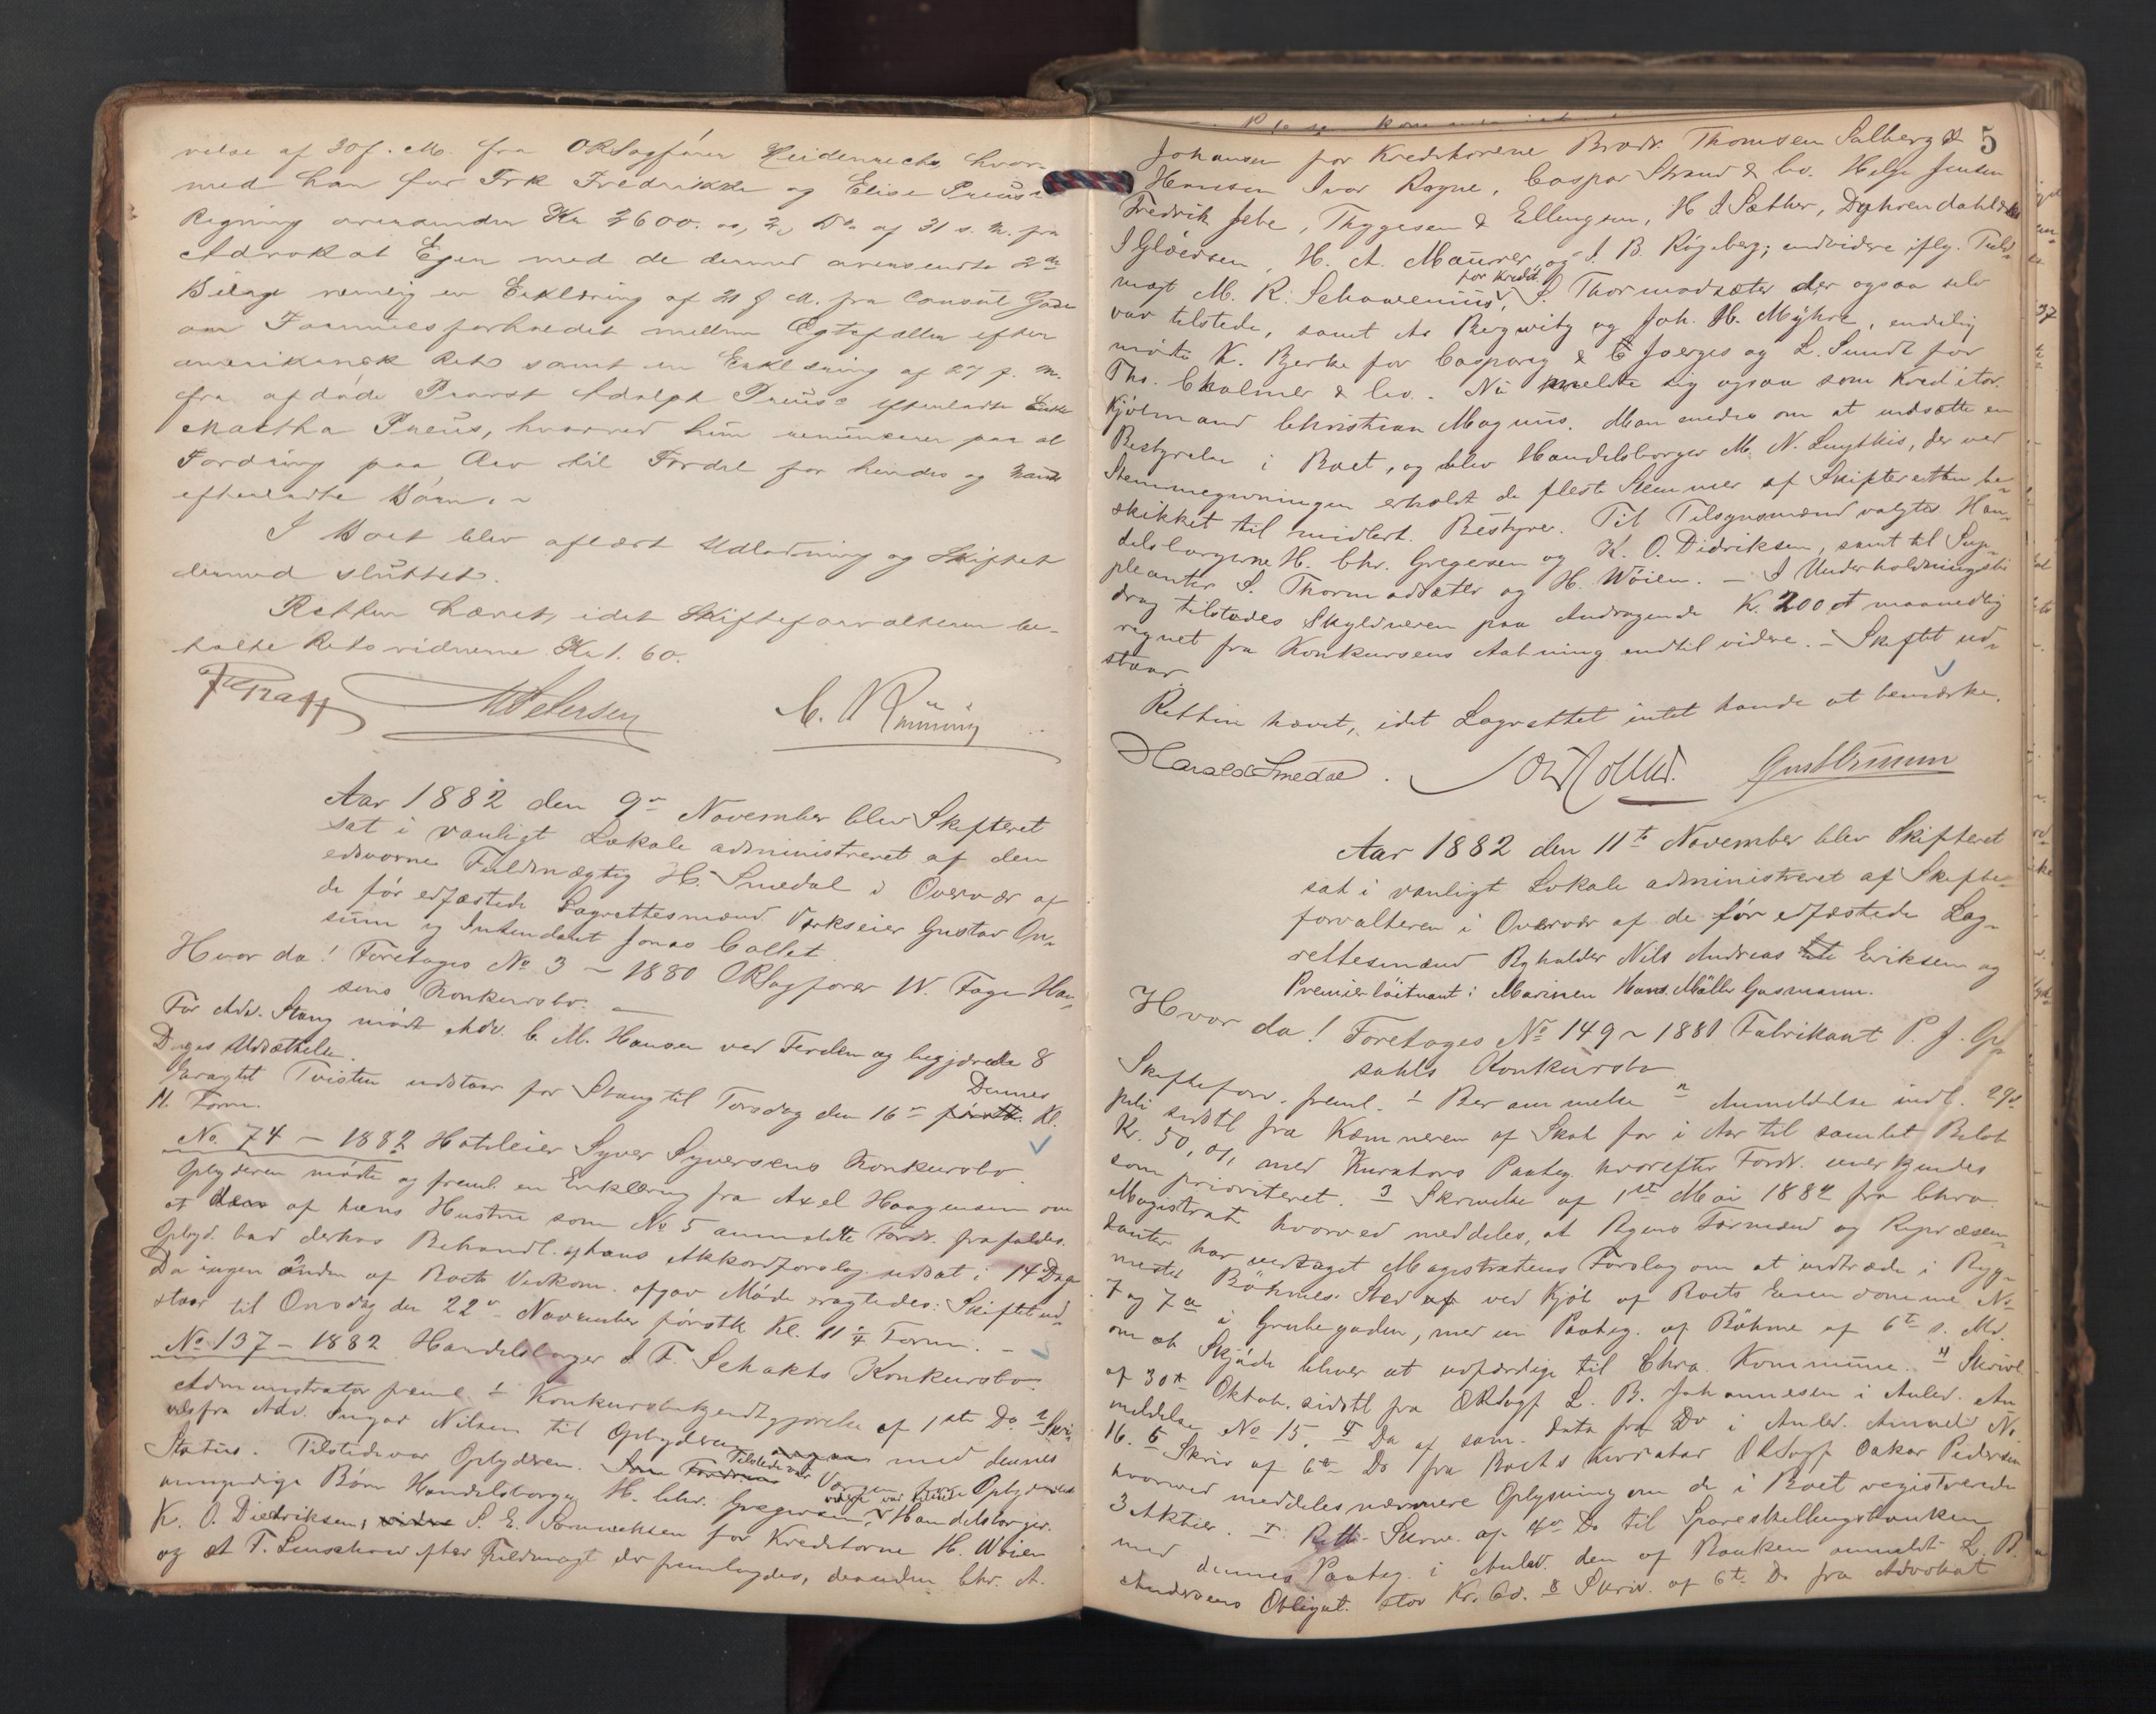 velse af 30 f. M. fra ORSagfører Heidenreich, hvor-
med han for Frk Fredrikke og Elise Preus's
Regning oversender Kr 2600.00, 2, Do af 31 s. M. fra
Advokat Egen med de dermed oversendte 2de
Bilage nemlig en Erklæring af 21 f. M. fra Consul Gade
om Formuesforholdet mellem Egtefæller efter
amerikansk Ret samt en Erklæring af 27 f. M.
fra afdøde Provst Adolph Preus's efterladte Enke
Martha Preus, hvorved hun renuncerer paa al
Fordring paa Arv til Fordel for hendes og Mands
efterladte Børn. ~
I Boet blev aflæst Udlodning og Skiftet
dermed sluttet.
Retten hævet, idet Skifteforvalteren be-
talte Retsvidnerne Kr 1. 60.
C. Rønning
Aar 1882 den 9de November blev Skifteret
sat i vanligt Lokale administreret af den
edsvorne Fuldmægtig H. Smedal i Overvær af
de før edfæstede Lagrettesmænd Værkseier Gustav On-
sum og Intendant Jonas Collet
Hvor da! Foretages No 3 – 1880 ORSagfører W. Fage Han-
sens Konkursbo. —
For Adv. Stang mødte Adv. C. M. Hansen ved Ferden og begjærede 8
Dages Udsættelse.
Eragtet Tvisten udstaar for Stang til Torsdag den 16de Dennes Kl.
11 Form.
No. 74 – 1882 Hoteleier Syver Syversens Konkursbo.
Opbyderen mødte og freml. en Erklæring fra Axel Haagensen om
at den af hans Hustru som No 5 anmeldte Fordr. frafaldes.
Opbyd. bad derhos Behandl. af hans Akkordforslag udsat i 14 Dage
Da ingen anden af Boets Vedkom. afgav Møde eragtedes: Skiftet ud-
staar til Onsdag den 22de November førstk Kl. 11 1/4 Form. —
No 137 – 1882 Handelsborger I F. Schakts Konkursbo.
Administrator freml. 1 Konkursbekjendtgjørelse af 1ste Do. 2 Skri-
velse fra Adv. Ingvar Nilsen til Opbyderen med dennes
Status. Tilstede var Opbyderen. Tilstede var Vergen for Opbyderens
umyndige Børn Handelsborger H. Chr. Gregersen, videre var tilstede Handelsborger
K. O. Diedriksen, S. E. Sørnecksen for Kreditorerne H. Wøien
og A T. Linschow efter Fuldmagt der fremlagdes, desuden Chr. A.
5
Johansen for Kreditorerne Brødr. Thomsen Salberg &
Hansen Ivar Rogne, Caspar Strand & Co. Helge Jensen
Fredrik Jebe, Thygesen & Ellingsen, H. J. Sæther, Dyhrendahl
I Gløersen, H. A. Maurer og I. B. Røgeberg; endvidere iflg. Fuld-
magt M. R. Schawenius for Kredit. S. Thormodsæter der ogsaa selv
var tilstede, samt A. Bergwitz og Joh. H. Myhre, endelig
mødte K. Bjerke for Casparry & Joerges og L. Sundt for
Ths. Chalmer & Co. Nu meldte sig ogsaa som Kreditor
Kjøbmand Christian Magnus. Man enedes om at indsætte en
Bestyrelse i Boet, og blev Handelsborger M. N. Lugthis, der ved
Stemmegivningen erholdt de fleste Stemmer af Skifteretten be-
skikket til midlert. Bestyrer. Til Tilsynsmænd valgtes Han-
delsborgerne H. Chr. Gregersen og K. O. Didriksen, samt til Sup-
pleanter S. Thormodsæter og H. Wøien. — I Underholdningsbi-
drag tilstodes Skyldneren paa Andragende K. 200 maanedlig
regnet fra Konkursens Aabning indtil videre. – Skiftet ud-
staar
Retten hævet, idet Lagrettet intet havde at bemærke.
Harald Smedal. Jonas Collett. Gust Onsum
Aar 1882 den 11te November blev Skifteret
sat i vanligt Lokale administreret af Skifte-
forvalteren i Overvær af de før edfæstede Lag-
rettesmænd Bghalder Nils Andreas Eriksen og
Premierløitnant i Marinen Hans Møller Gasmann.
Hvor da! Foretages No 149 ~ 1881 Fabrikant P. J. Op-
sahls Konkursbo
Skifteforv. freml. 1 Berammelse 2 Anmeldelse indl. 29de
Juli sidstl fra Kæmneren af Skat for i Aar til samlet Beløb
Kr. 50, 07, med Kurators Paateg. hvorefter Fordr. anerkjendes
som prioriteret. 3 Skrivelse af 1ste Mai 1882 fra Chra
Magistrat hvorved meddeles, at Byens Formænd og Repræsen-
tanter har vedtaget Magistratens Forslag om at indtræde i Byg-
mester Böhmes Sted ved Kjøb af Boets Eiendomme No
7 og 7 a i Grubegaden, med en Paateg. af Böhme af 6te s. Md.
om at Skjøde bliver at udfærdige til Chra. Kommune. 4 Skrivl
af 30te Oktob. sidstl fra ORSagf L. B. Johannesen i Anled. An-
meldelse No 15. 5 Do af sam. Data fra Do i Anled. Anmeld No.
16. 6 Skriv af 6te Do fra Boets Kurator ORSagf Oskar Pedersen
hvorved meddeles nærmere Oplysning om de i Boet registrerede
3 Aktier. 7. Rett. Skriv. af 4de Do til Spareskillingsbanken
med dennes Paateg. i Anled. den af Banken anmeldt L. B.
Andersens Obligat. stor Kr. 60. 8 Skriv. af 6te Do fra Advokat